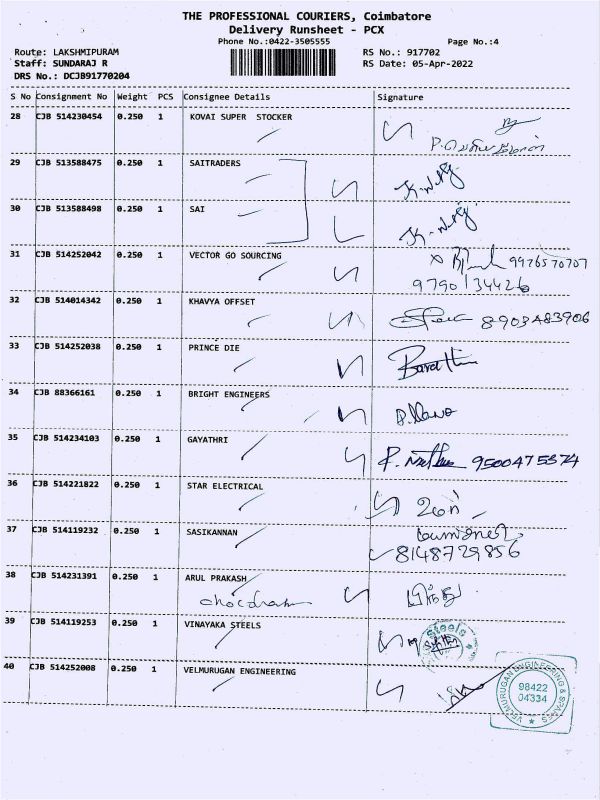 THE PROFESSIONAL COURIERS, Coimbatore
Delivery Runsheet - PCX
Phone No.:0422-3505555
Page No.:4
Route: LAKSHMIPURAM
RS No.: 917702
Staff: SUNDARAJ R
RS Date: 05-Apr-2022
DRS No.: DCJB91770204
S No Consignment No Weight PCS Consignee Details Signature
28 CJB 514230454 0.250 1 KOVAI SUPER STOCKER
29 CJB 513588475 0.250 1 SAITRADERS
30 CJB 513588498 0.250 1 SAI
31 CJB 514252042 0.250 1 VECTOR GO SOURCING
9976570707
9790134426
32 CJB 514014342 0.250 1 KHAVYA OFFSET
8903483906
33 CJB 514252038 0.250 1 PRINCE DIE
34 CJB 88366161 0.250 1 BRIGHT ENGINEERS
35 CJB 514234103 0.250 1 GAYATHRI
9500475374
36 CJB 514221822 0.250 1 STAR ELECTRICAL
37 CJB 514119232 0.250 1 SASIKANNAN
8148729856
38 CJB 514231391 0.250 1 ARUL PRAKASH
39 CJB 514119253 0.250 1 VINAYAKA STEELS
Steels
40 CJB 514252008 0.250 1 VELMURUGAN ENGINEERING
VELMURUGAN ENGINEERING & SPARES
98422
04334